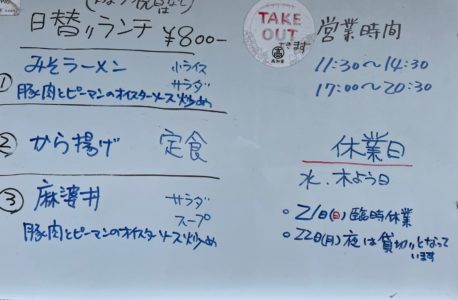 日替りランチ ¥800-
① みそラーメン 小ライス
サラダ
豚肉とピーマンのオイスターソース炒め
② から揚げ 定食
③ 麻婆丼 サラダ
スープ
豚肉とピーマンのオイスターソース炒め
TAKE
OUT
できます
営業時間
11:30〜14:30
17:00〜20:30
休業日
水、木よう日
○21日(日)臨時休業
○22日(月)夜は貸切りとなって
います